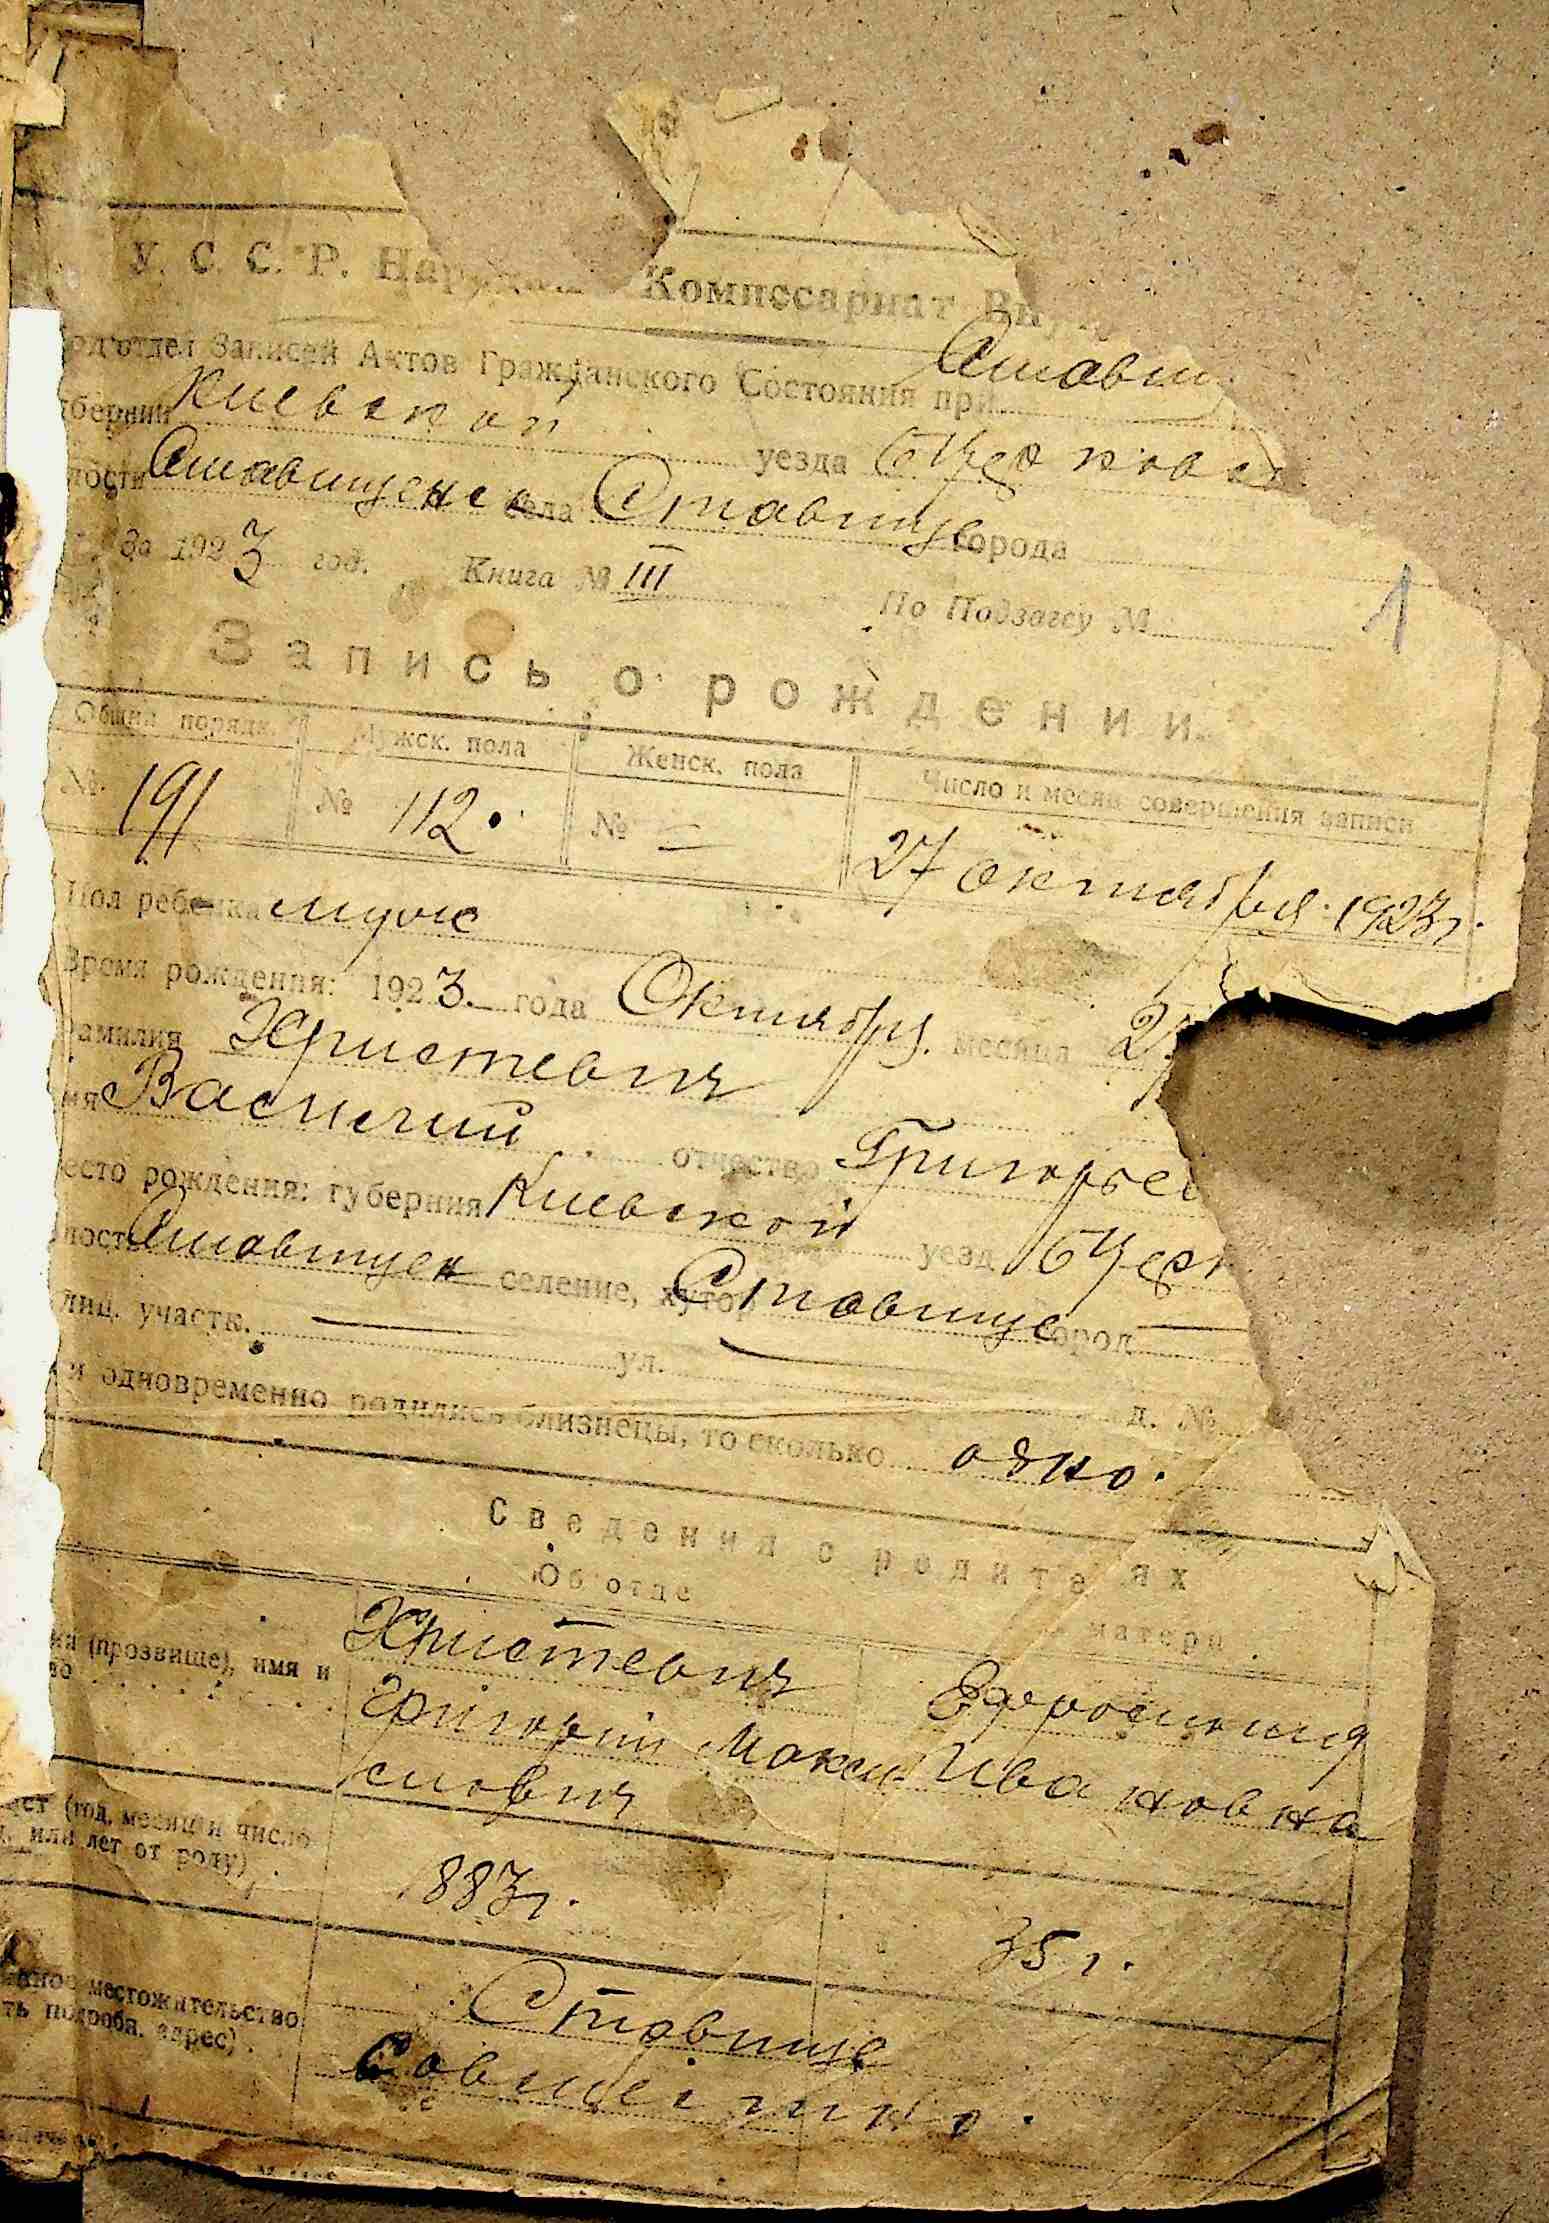 У. С. С. Р. Народный Комиссариат Вну
одотдел Записей Актов Гражданского Состояния при Ставищ
бернии Киевской уезда БЦерковск
лости Ставищенск села Ставище города
За 1923 год. Книга № III По Подзагсу № 1
Запись о рождении
Общий порядк. Мужск. пола Женск. пола Число и месяц совершения записи
№ 191 № 112. № = 27 Октября 1923 г.
Пол ребенка муж
Время рождения: 1923. года Октября месяца 2
фамилия Христевич
мя Василий отчество Григорьев
есто рождения: губерния Киевской уезд БЦерк
лость Ставищен селение, хутор Ставище город —
лиц. участк. — ул. — д. №
и одновременно родились близнецы, то сколько одно.
Сведения о родителях
Об отце матери
ия (прозвище), имя и во Христевич Ефросиния
Григорий Макси- Ивановна
мович
аст (год, месяц и число
д. или лет от роду) 1883 г. 35 г.
янное местожительство Ставище
ть подробн. адрес) Совместно.